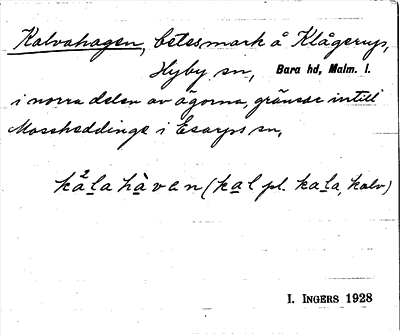 Kalvahagen, betesmark å Klågerup,
Hyby sn, Bara hd, Malm. l.
i norra delen av ägorna, gränsar intill
Mossheddinge i Esarps sn,
kà²lahàven (kal pl. kala, kalv)
I. INGERS 1928